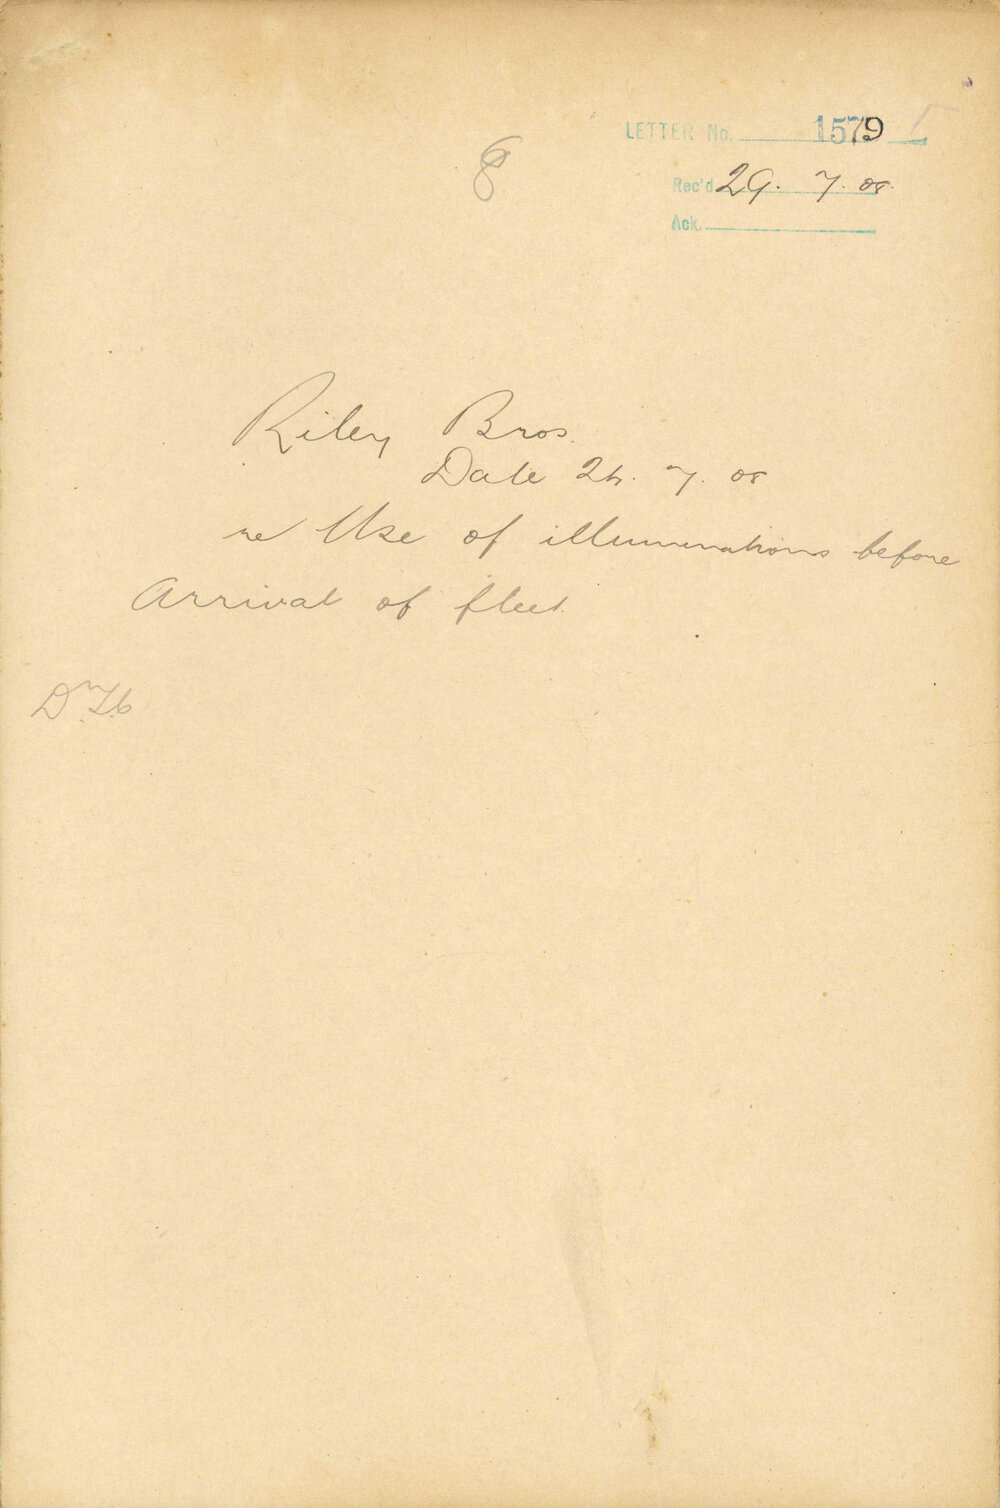 LETTER No. 1579
8
Rec'd 29. 7. 08.
Ack.
Riley Bros.
Date 7. 08
re Use of illuminations before
Arrival of fleet.